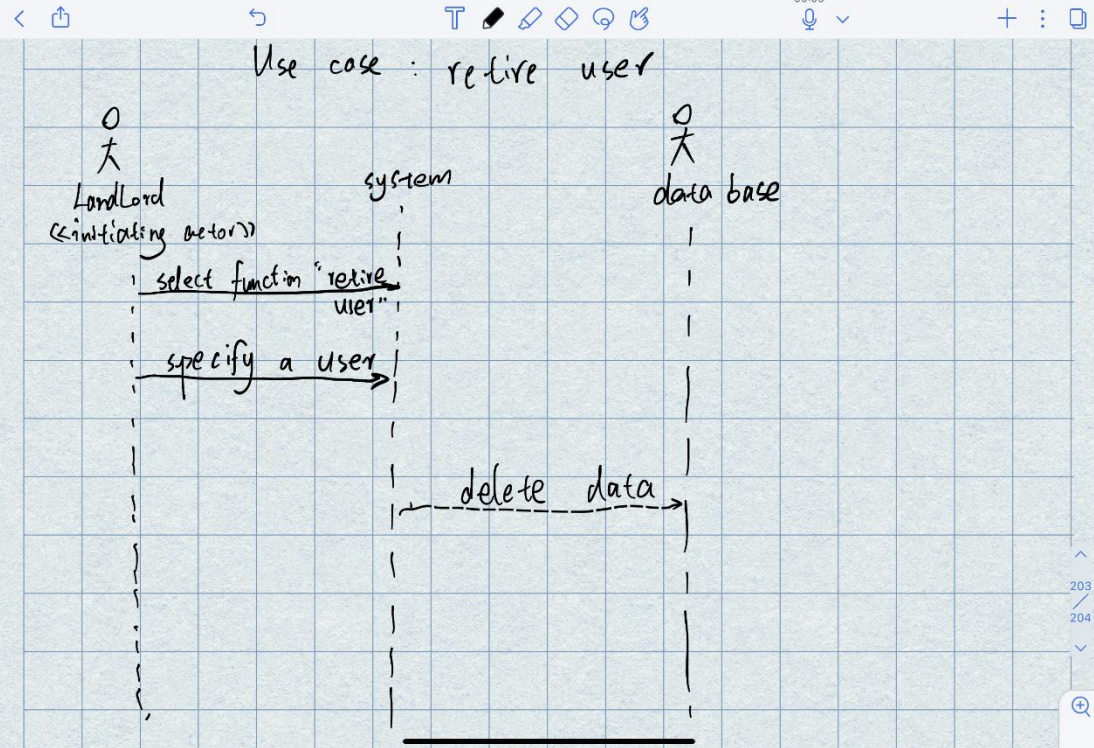 Use case : retire user
LandLord
<<initiating actor>>
system
data base
select function "retire
user"
specify a user
delete data
203
204